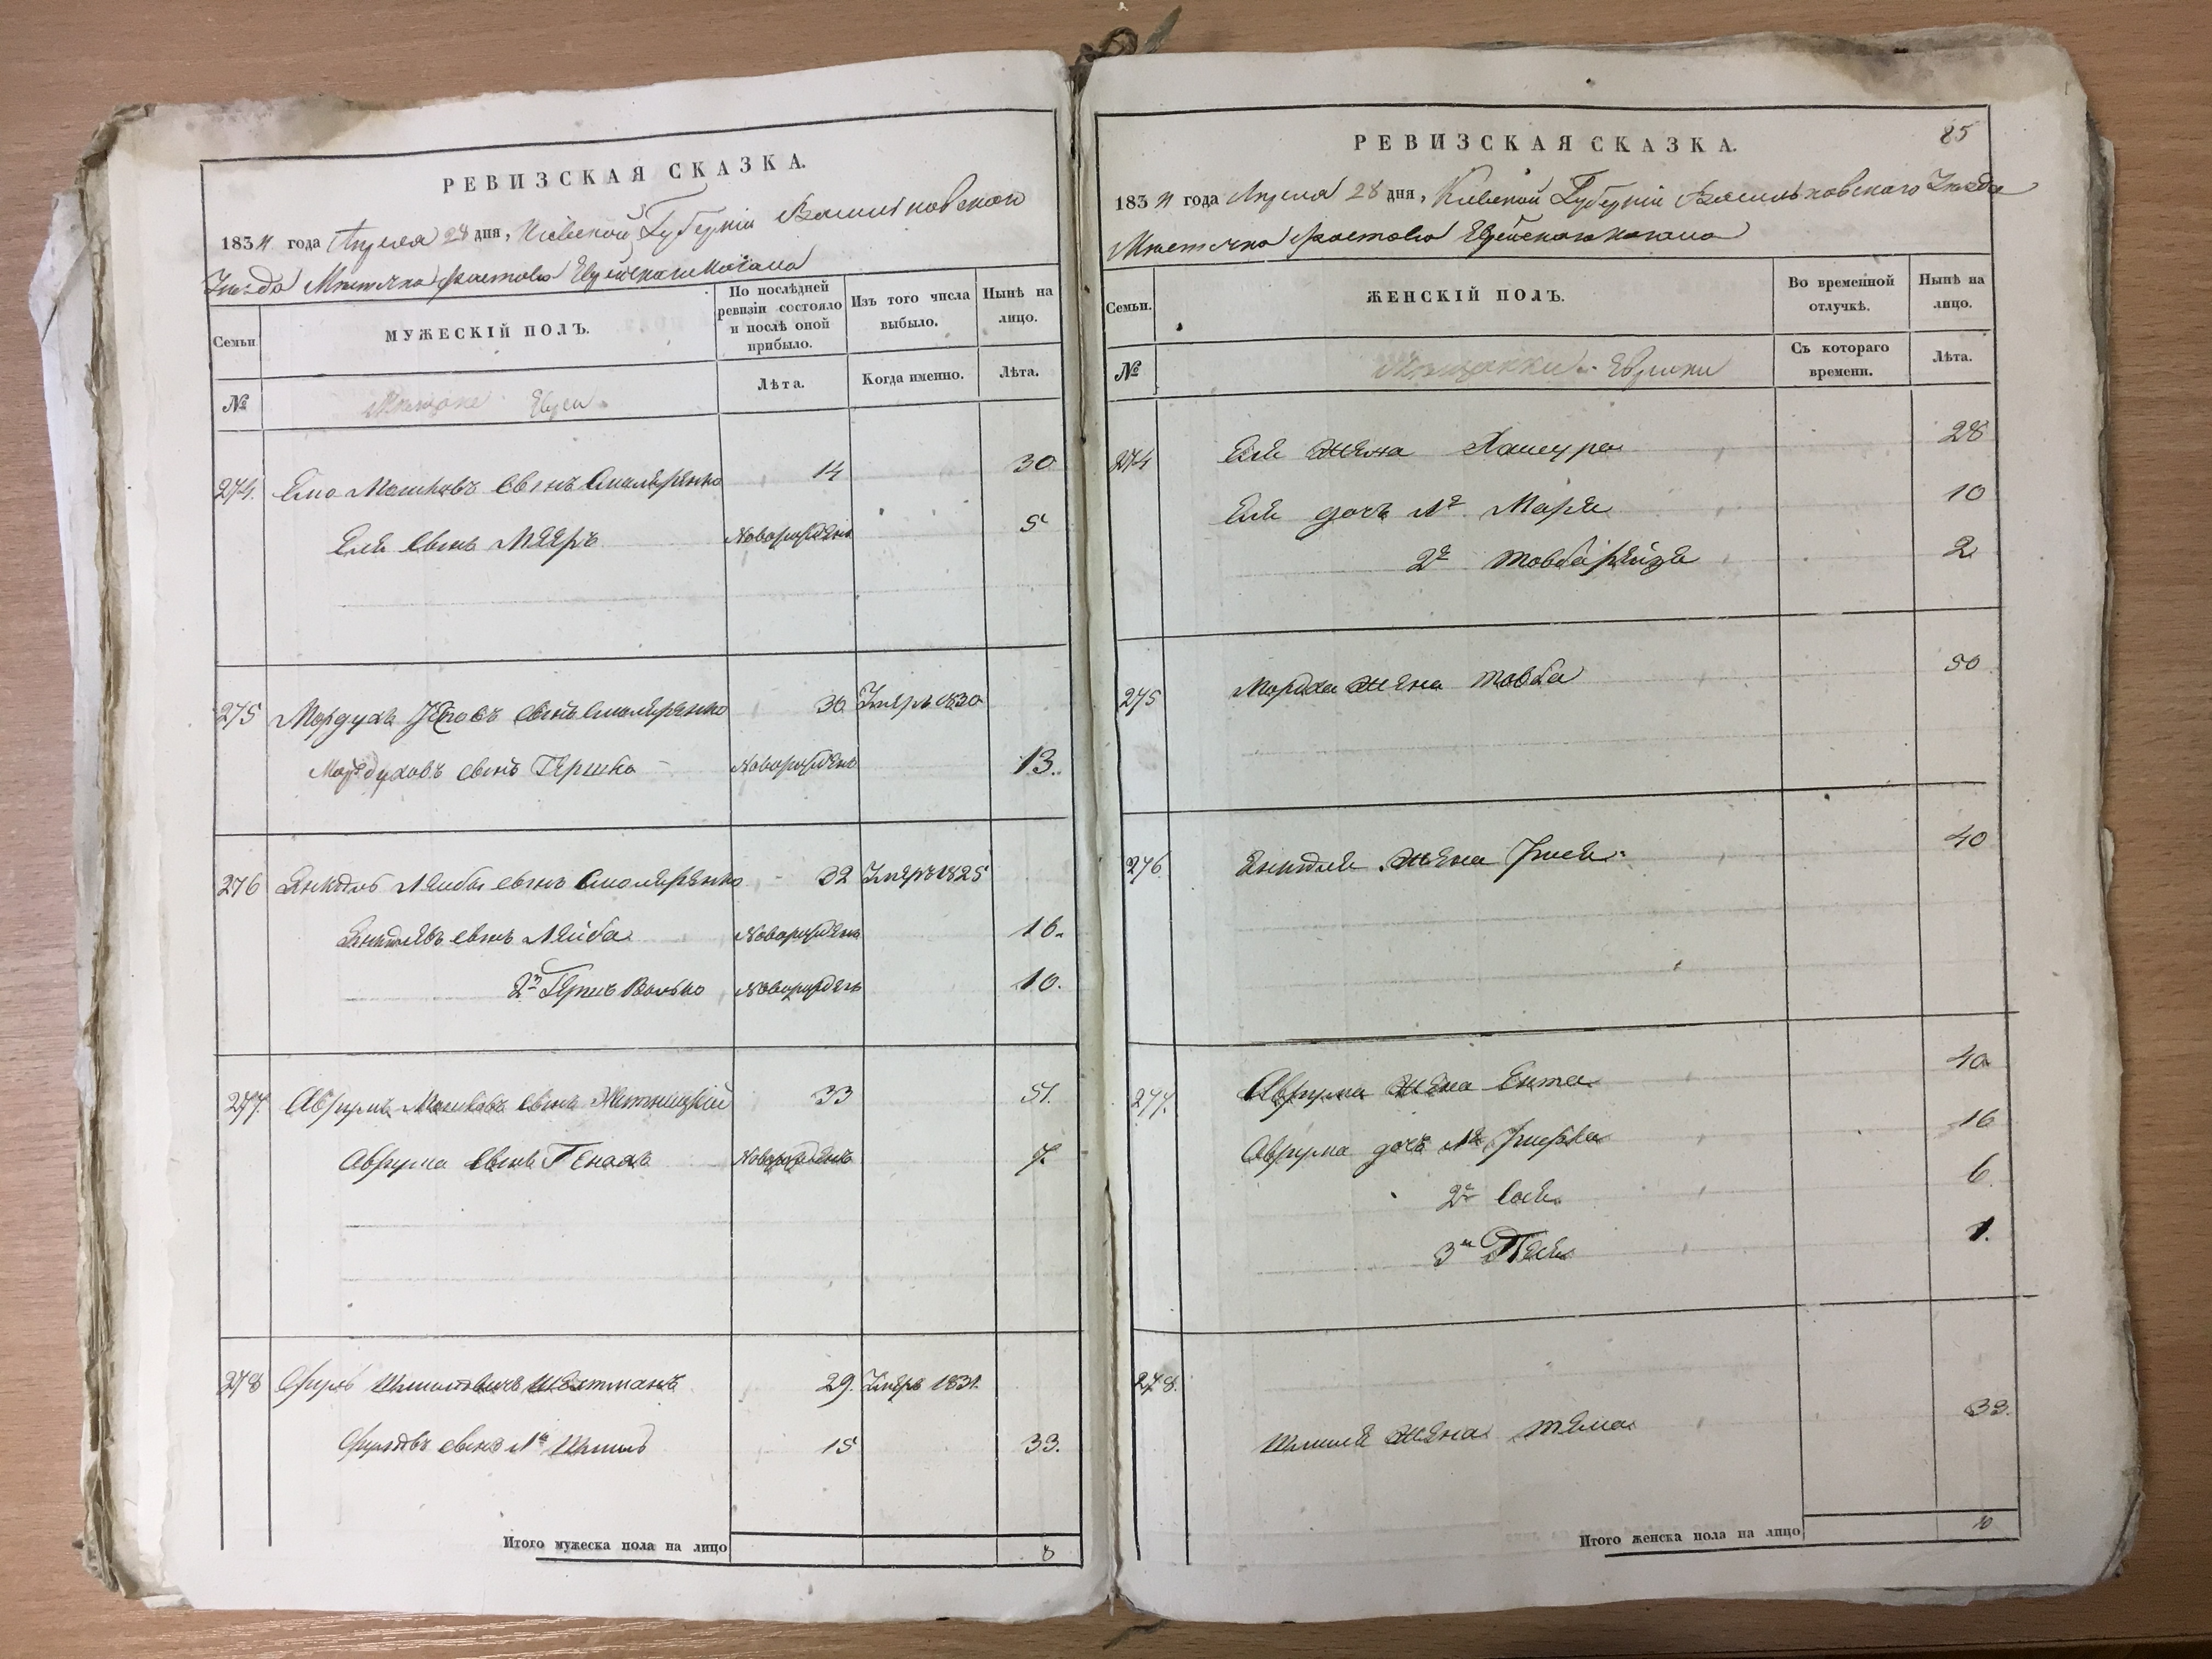 РЕВИЗСКАЯ СКАЗКА.
1834 года Апреля 28 дня, Кіевской Губерніи Васильковскаго
Уезда Местечка Фастова Еврейскаго Кагала
Семьи
МУЖЕСКІЙ ПОЛЪ.
По послѣдней ревизіи состояло и послѣ оной прибыло.
Изъ того числа выбыло.
Нынѣ на лицо.
№
Мещане Евреи
Лѣта.
Когда именно.
Лѣта.
274. Сынъ Смоляренко 14 30
Еля Сынъ Мееръ Новорожденъ 5
275 Мордухъ Сынъ Смоляренко 36 Умеръ 1830
Мордуховъ сынъ Гершко Новорожденъ 13.
276 Янкель Лейбы сынъ Смоляренко 32 Умеръ 1825
Янкелевъ сынъ Лейба Новорожденъ 16.
2й Герш Волько Новорожденъ 10.
277. Аврумъ Мошковъ сынъ Житницкій 33 51.
Аврума Сынъ Новорожденъ 7.
278 29. Умеръ 1831.
сынъ 1й Шмиль 15 33.
Итого мужеска пола на лицо 8
РЕВИЗСКАЯ СКАЗКА.
85
1834 года Апреля 28 дня, Кіевской Губерніи Васильковскаго Уезда
Местечка Фастова Еврейскаго Кагала
Семьи.
ЖЕНСКІЙ ПОЛЪ.
Во временной отлучкѣ.
Нынѣ на лицо.
№
Мещанки Еврейки
Съ котораго времени.
Лѣта.
274 Еля жена 28
Еля дочь 1я Маря 10
2я Товба Рейзя 2
275 Мордха жена Товба 50
276 Янкеля жена 40
277. Аврума жена Ента 40
Аврума дочь 1я 16
2я Сося 6.
3я Песя 1.
278.
Шмиля жена 33.
Итого женска пола на лицо 10